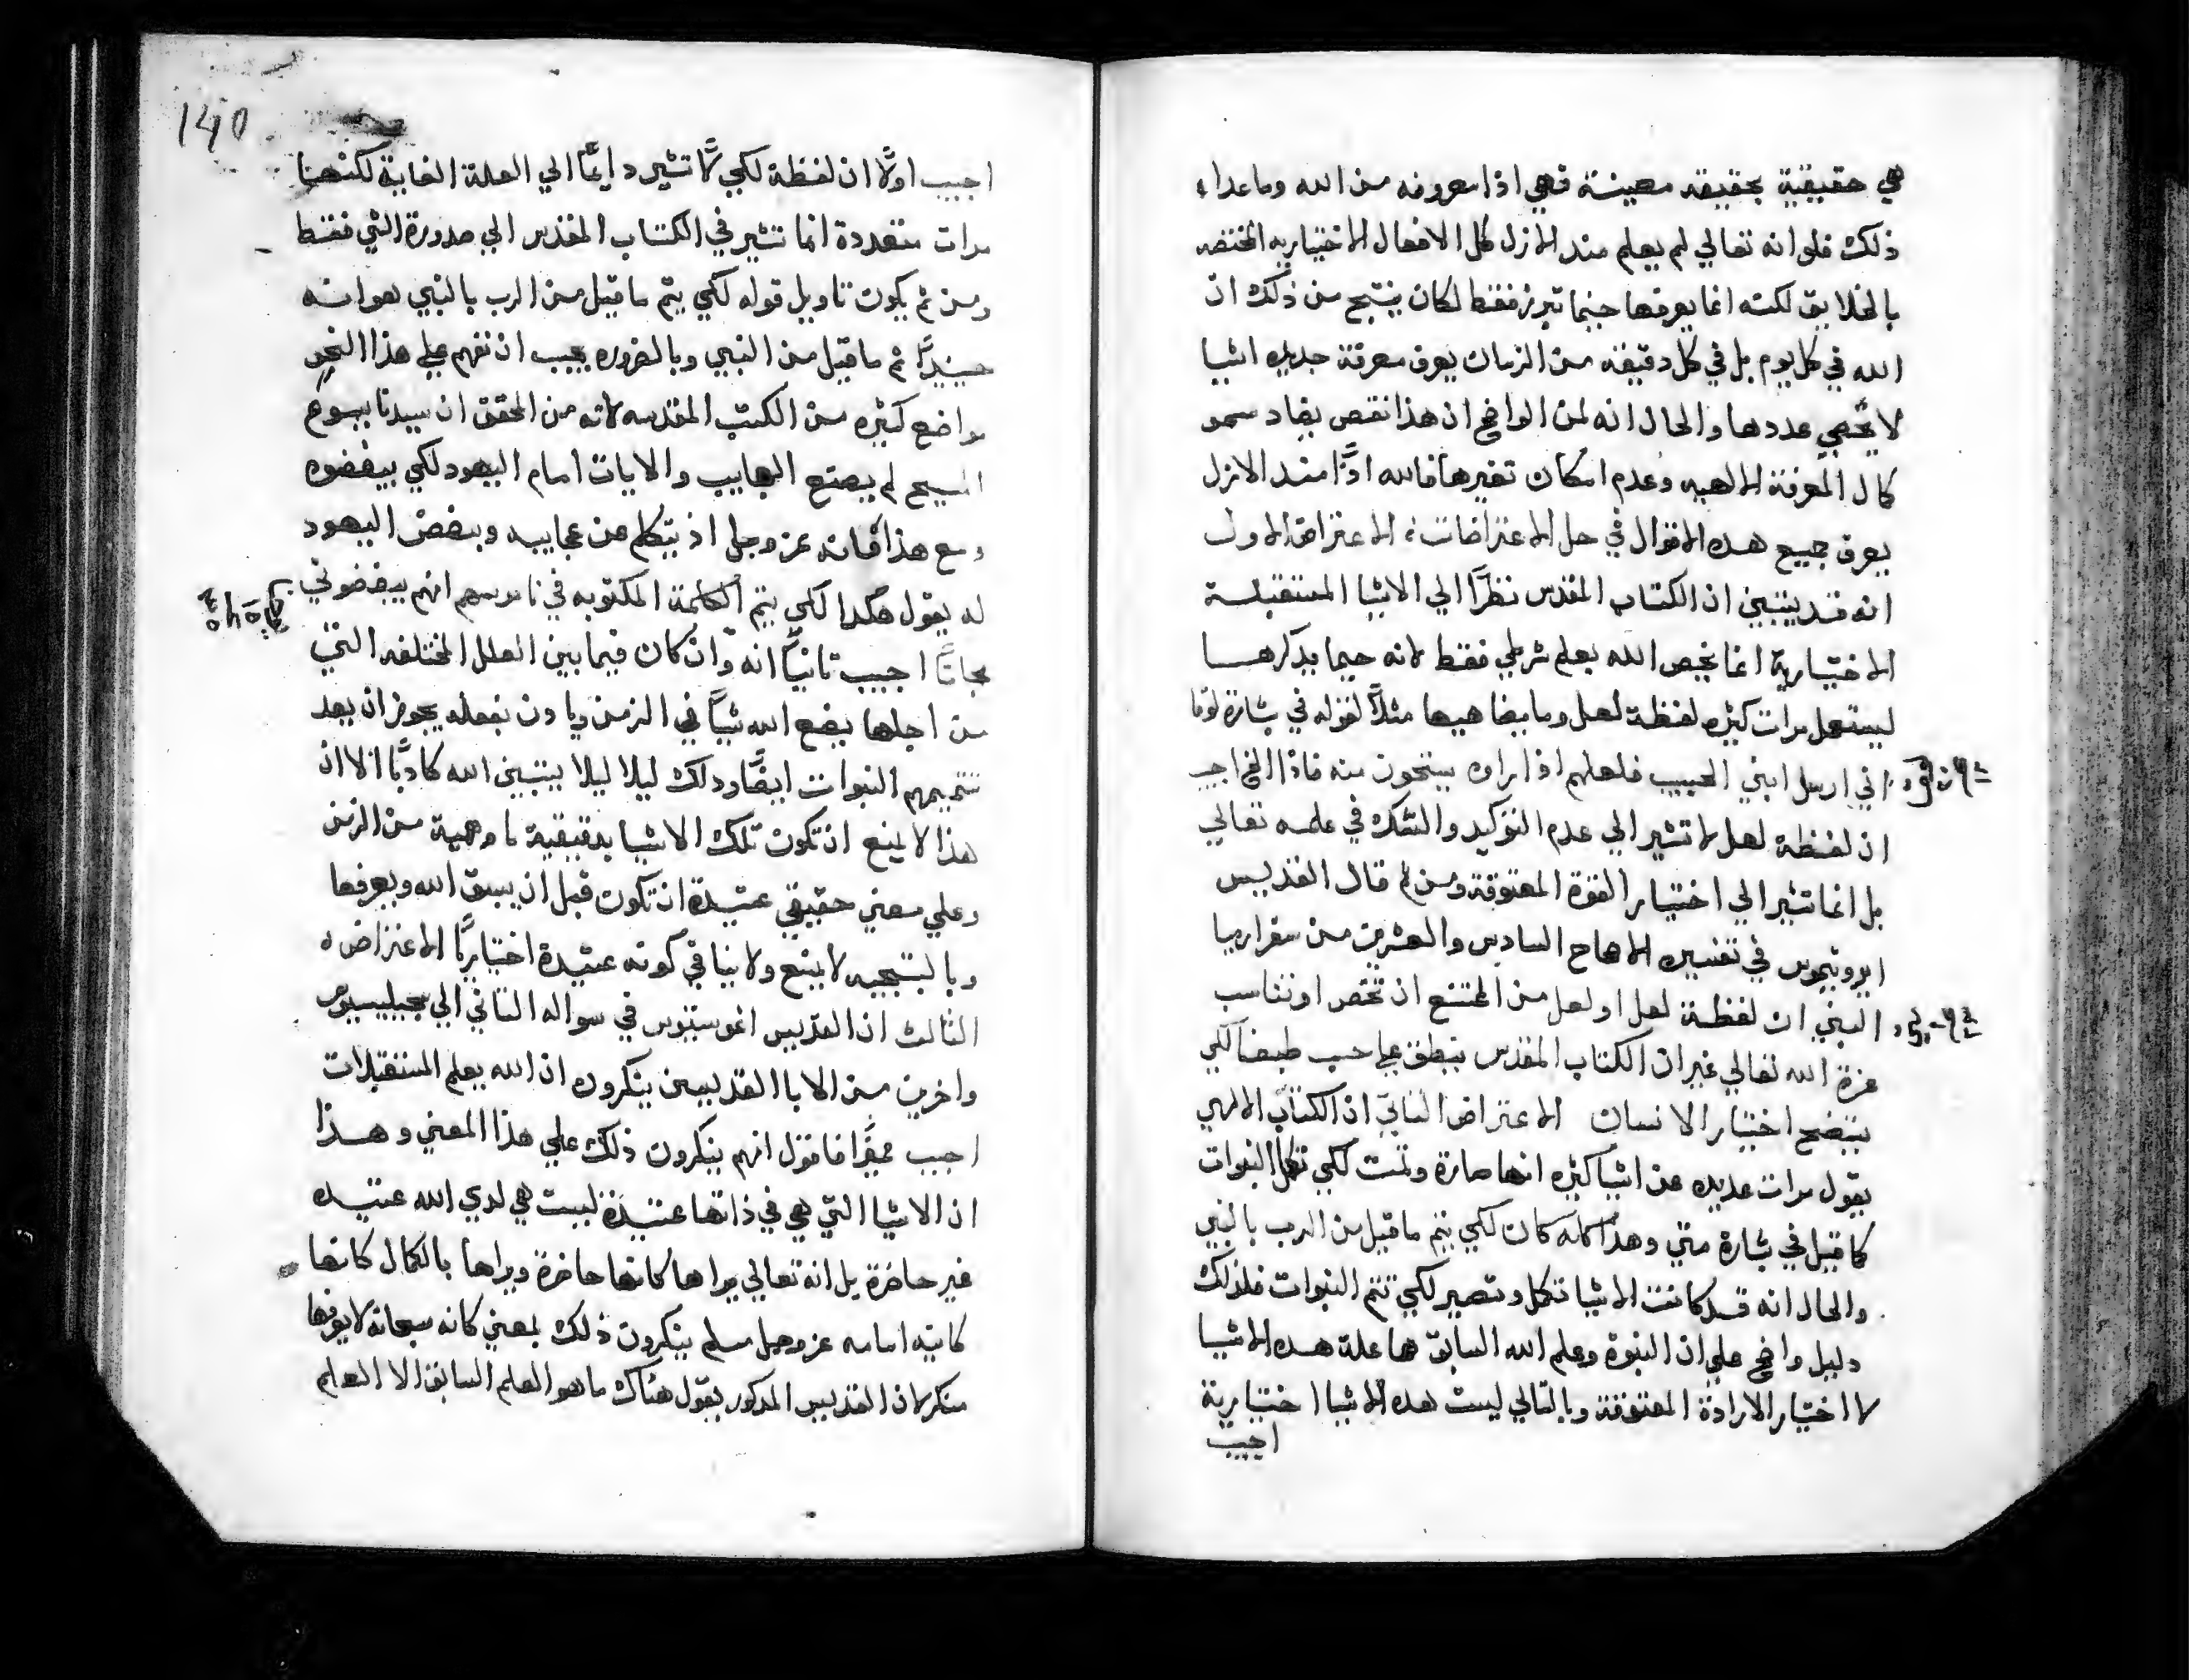 هي حقيقية بحقيقه معينة فهي اذا معروفه من الله وماعداء
ذلك فلو انه تعالي لم يعلم مند الازل كل الافعال الاختياريه المختصه
بالخلايق لكنه انما يعرفها حينما تبرز فقط لكان ينتج من ذلك ان
الله في كل يوم بل في كل دقيقه من الزمان يعرف معرفة جديده اشيا
لا تحصي عددها والحال انه لمن الواضح ان هذا نقص يضاد سمو
كمال المعرفة الالهيه وعدم امكان تغيرها فالله اذًا مند الازل
يعرف جميع هده الاقوال في حل الاعتراضات، الاعتراض الاول
انه قد يتبين ان الكتاب المقدس نظرًا الي الاشيا المستقبلة
الاختيارية انما يخص الله بعلم شرطي فقط لانه حيما يدكرها
ليستعمل مرات كثيره لفظة لعل وما يضاهيها مثلًا لقوله في بشارة لوقا
اني ارسل ابني الحبيب فلعلهم اذا راوه يستحون منه فاذا اجيب
ان لفظة لعل لا تشير الي عدم التوكيد والشك في علمه تعالي
بل انما تشير الي اختيار القوة المعتوقة ومن ثم قال القديس
ايرونيموس في تفسيره الاصحاح السادس والعشرين من سفر ارميا
النبي ان لفظة لعل او لعل من الممتنع ان تختص او تناسب
عزة الله تعالي غير ان الكتاب المقدس ينطق علي حسب طبعنا لكي
يتضح اختيار الانسان الاعتراض الثاني ان الكتاب الالهي
يقول مرات عديده عن اشيا كثيره انها صارة وتمت لكي تكمل النبوات
كما قيل في بشارة متي وهذا كله كان لكي يتم ما قيل من الرب بالنبي
والحال انه قد كانت الاشيا تكمل وتصير لكي تتم النبوات فلذلك
دليل واضح علي ان النبوة وعلم الله السابق هما علة هده الاشيا
لا اختيار الارادة المعتوقة وبالتالي ليست هده الاشيا اختيارية
اجيب
140
اجيب اولًا ان لفظة لكي لا تشير دايمًا الي العلة الغاية لكنها
مرات متعددة انما تشير في الكتاب المقدس الي صدورة الشي فقط
ومن ثم يكون تاويل قوله لكي يتم ما قيل من الرب بالنبي هو انه
حينيدٍ تم ما قيل من النبي وبالضروره يجب ان نفهم علي هذا النحو
مواضع كثيره من الكتب المقدسه لانه من المحقق ان سيدنا يسوع
المسيح لم يصنع العجايب والايات امام اليهود لكي يبغضوه
ومع هذا فانه عز وجل اذ يتكلم عن عجايبه وبغض اليهود
له يقول هكدا لكي يتم الكلمة المكتوبه في ناموسهم انهم يبغضوني
مجانًا اجيب تانيًا انه وان كان فيما بين العلل المختلفه التي
من اجلها يضع الله شيًا في الزمن ويادن بفعله يجوز ان يعد
تتميمهم النبوات ايضًا ودلك ليلا يتبين الله كادبًا الا ان
هذا لا يمنع ان تكون تلك الاشيا بدقيقية ما وهمية من الزمن
وعلي معني حقيقي عتيدة ان تكون قبل ان يسبق الله ويعرفها
وبالنتيجه لا يمنع ولا ينافي كونه عتيدة اختياريًا الاعتراض
الثالث ان القديس اغوستنوس في سواله الثاني الي
واخرين من الابا القديسين ينكرون ان الله يعلم المستقبلات
اجيب مميزًا فاقول انهم ينكرون ذلك علي هذا المعني وهذا
ان الاشيا التي هي في ذاتها عتيدة ليست هي لدي الله عتيده
غير حاضرة بل انه تعالي يراها كانها حاضرة ويراها بالكمال كانها
كاينه امامه عز وجل مسلم ينكرون ذلك بمعني كانه سبحانه لا يعرفها
منكر لان القديس المدكور يقول هناك ما هو العلم السابق الا العلم